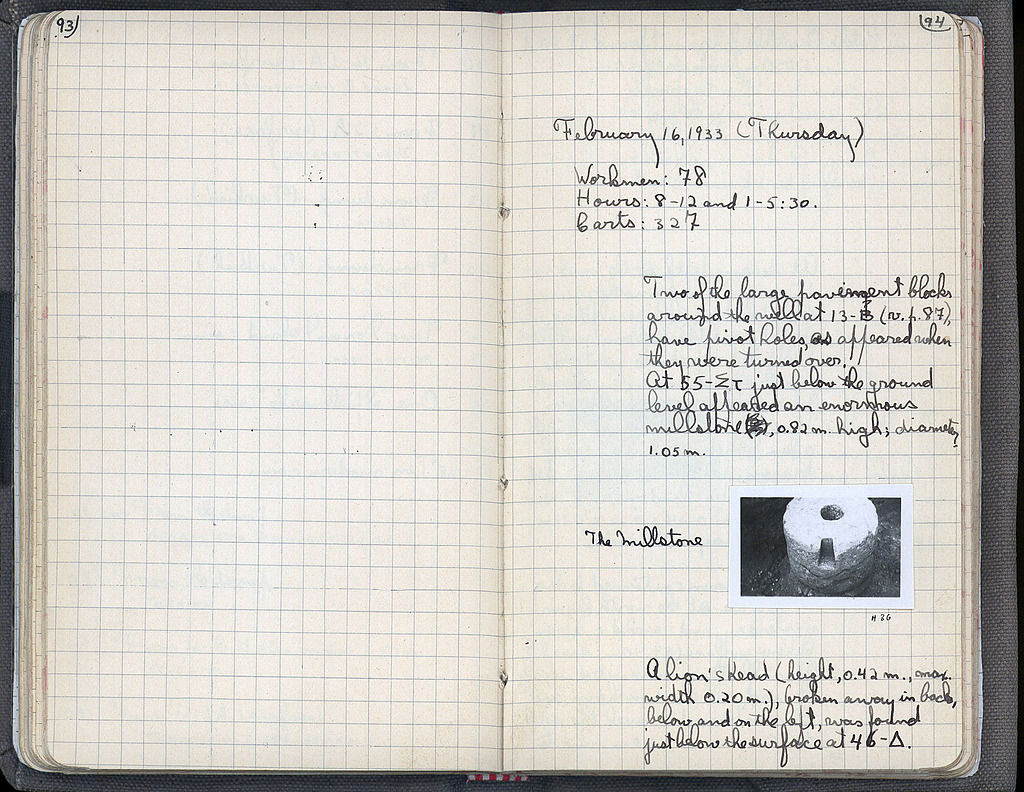 93
94
February 16, 1933 (Thursday)
Workmen: 78
Hours: 8-12 and 1-5:30.
Carts: 327
Two of the large pavement blocks
around the well at 13- (v. p. 87),
have pivot holes, as appeared when
they were turned over.
At 55-ΣΤ just below the ground
level appeared an enormous
millstone, 0.82 m. high; diameter,
1.05 m.
The Millstone
H 36
A lion's head (height, 0.42 m., max.
width 0.20 m.), broken away in back,
below, and on the left, was found
just below the surface at 46-Δ.